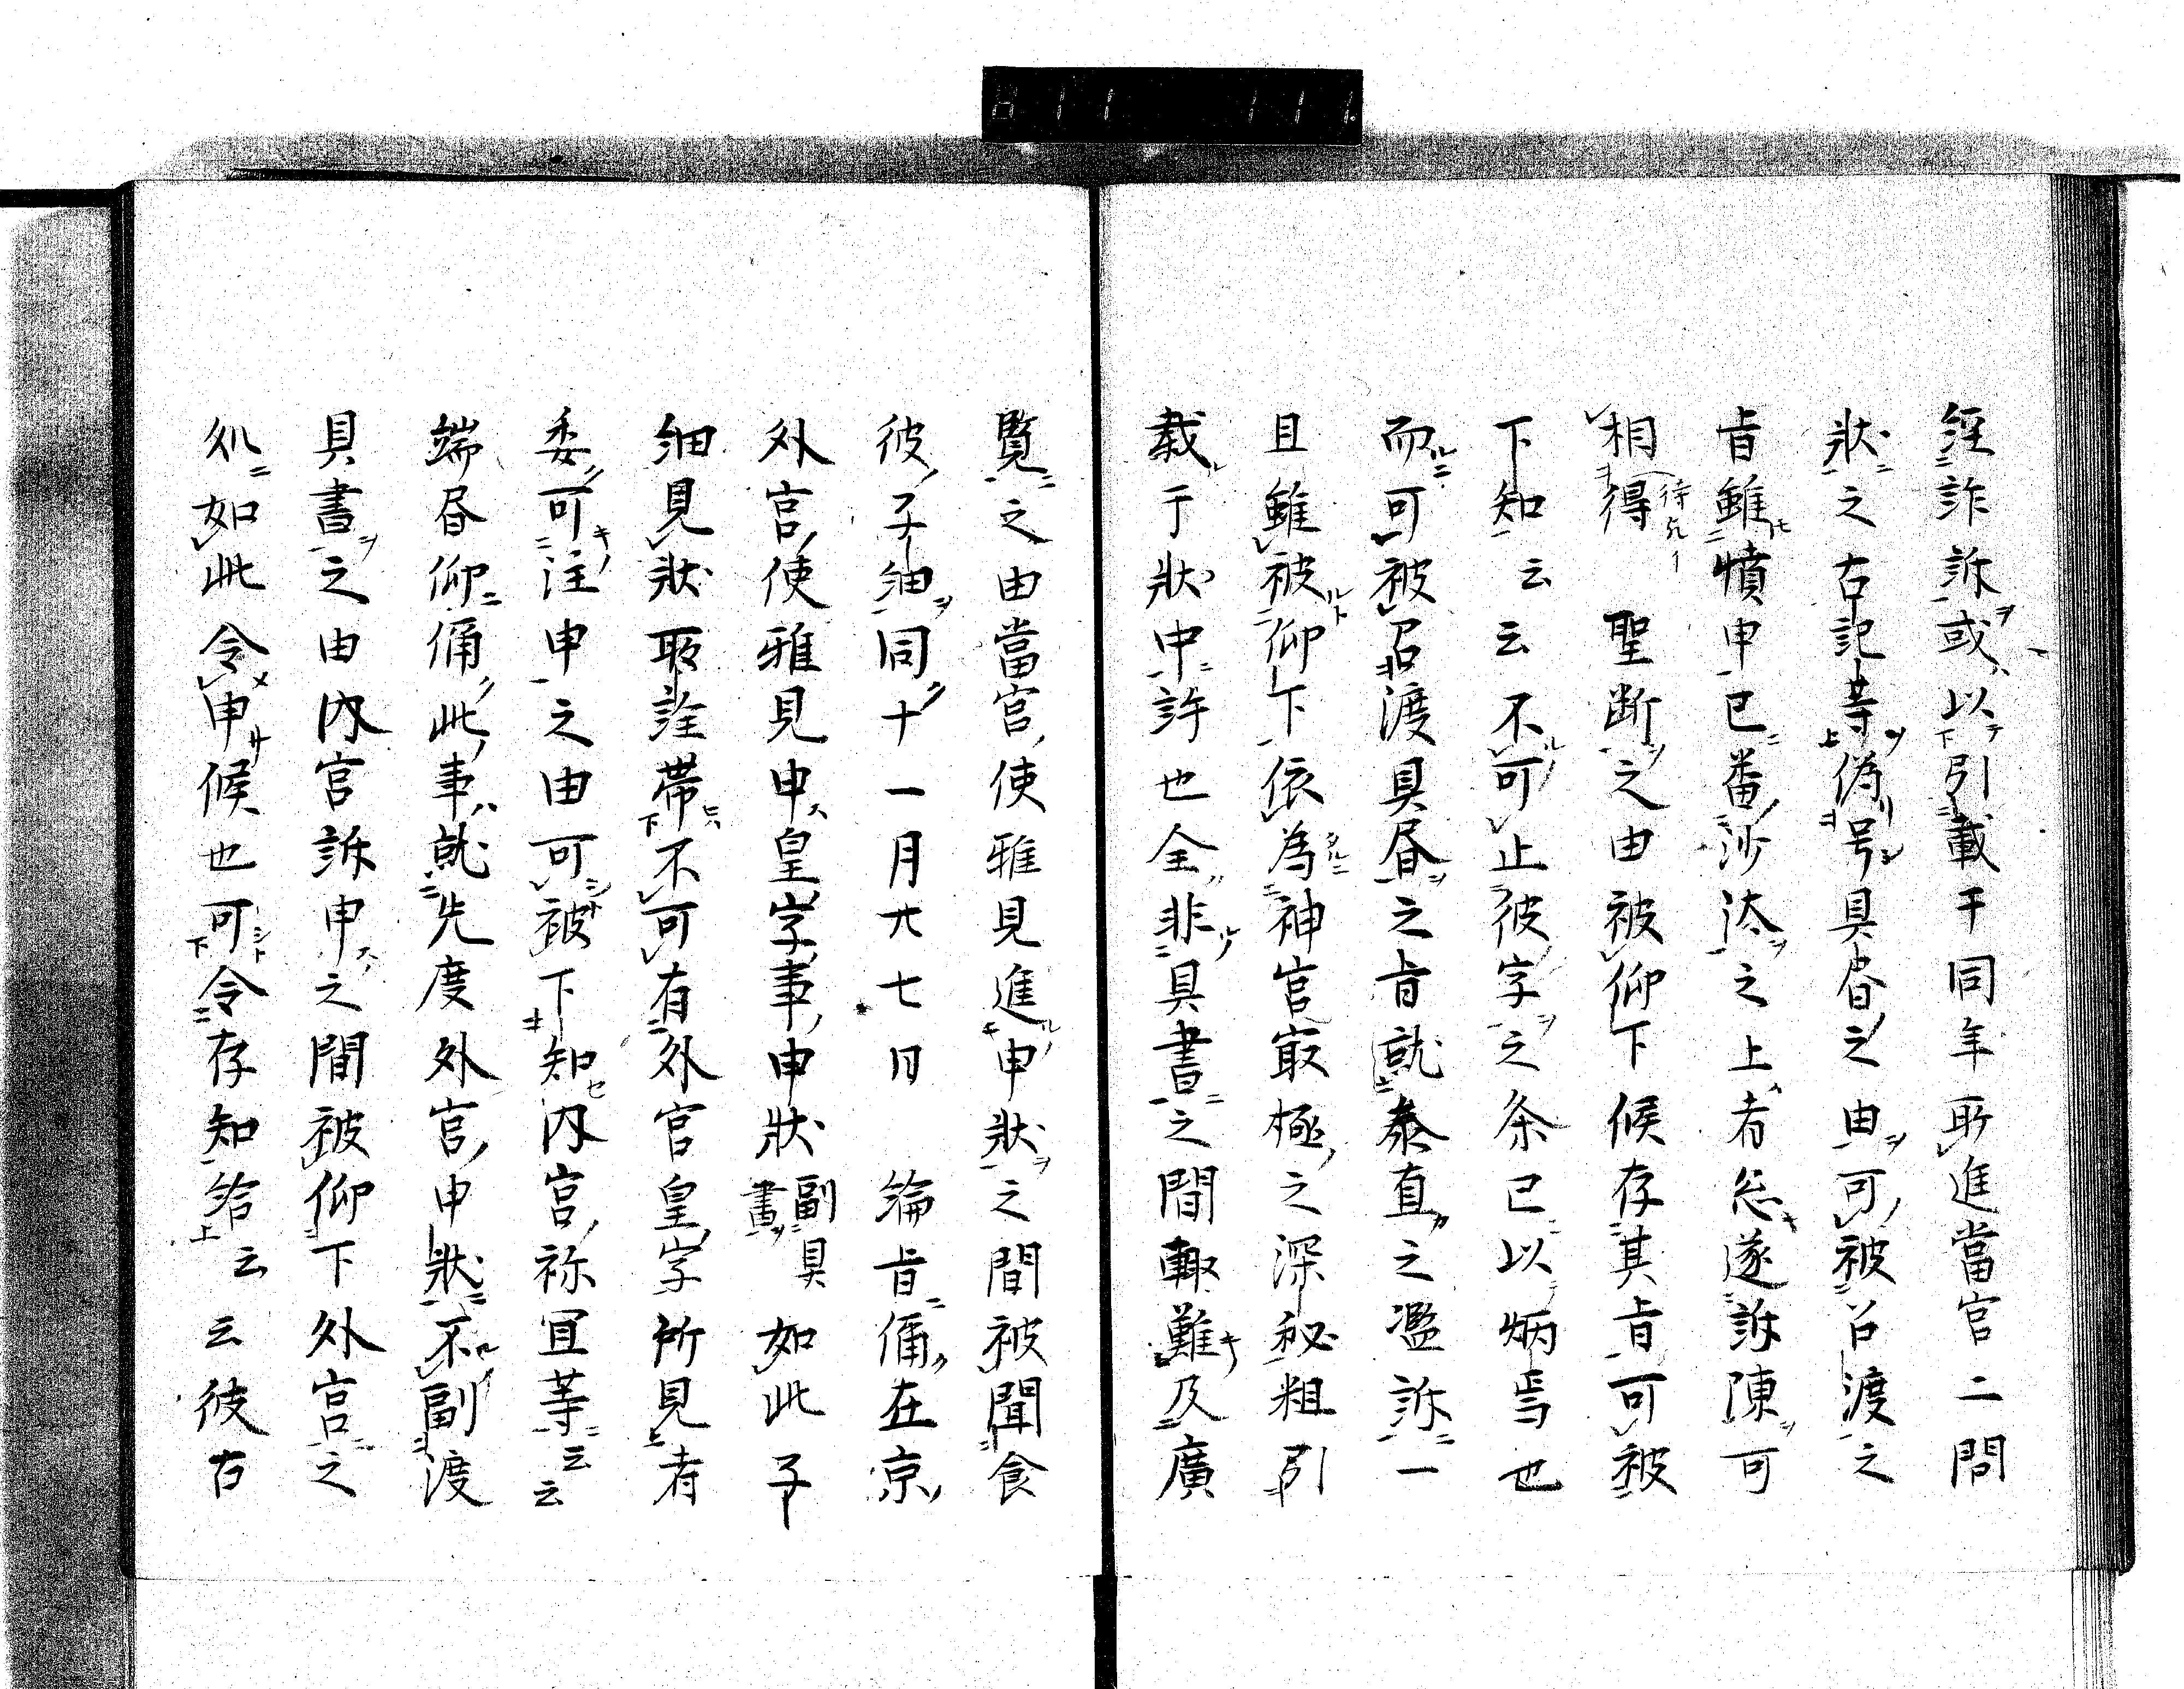 経詐訴或以引載于同年所進當官二問
状之古記等偽号具書之由可被召渡之
旨雖憤申已番沙汰之上者忩遂訴陳可
相得聖断之由被仰下候存其旨可被
下知云云不可止彼字之条已以炳焉也
而可被召渡具書之旨就泰直之濫訴一
且雖被仰下依為神宮最極之深秘粗引
載于状中許也全非具書之間輙難及廣
覧之由當宮使雅見進申状之間被聞食
彼子細同十一月廿七日 綸旨偁在京
外宮使雅見申皇字事申状副具書如此子
細見状所詮帯不可有外宮皇字所見者
委可注申之由可被下知内宮祢宜等云云
端書仰偁此事就先度外宮申状不副渡
具書之由内宮訴申之間被仰下外宮之
処如此令申候也可令存知給云云彼右